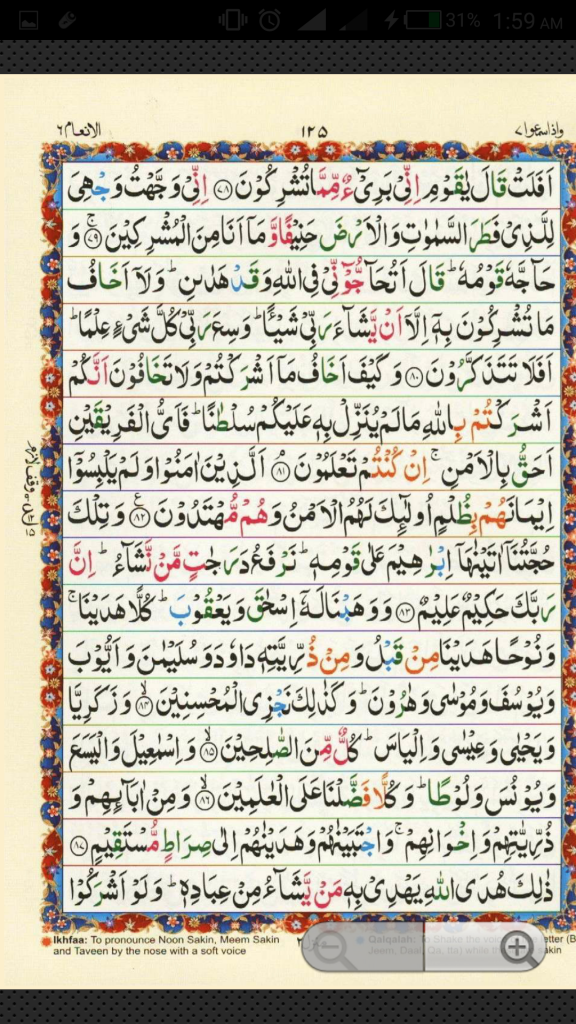 31% 1:59 AM
الانعام٦ ١٢٥ واذاسمعوا٧
اَفَلَتْ قَالَ يٰقَوْمِ اِنِّىْ بَرِىْٓءٌ مِّمَّا تُشْرِكُوْنَ ۝٧٨ اِنِّىْ وَجَّهْتُ وَجْهِىَ
لِلَّذِىْ فَطَرَ السَّمٰوٰتِ وَالْاَرْضَ حَنِيْفًا وَّمَاۤ اَنَا مِنَ الْمُشْرِكِيْنَ ۝٧٩ۚ وَ
حَآجَّهٗ قَوْمُهٗ ؕ قَالَ اَتُحَآجُّوْٓنِّىْ فِى اللّٰهِ وَقَدْ هَدٰىنِ ؕ وَلَاۤ اَخَافُ
مَا تُشْرِكُوْنَ بِهٖۤ اِلَّاۤ اَنْ يَّشَآءَ رَبِّىْ شَيْـًٔا ؕ وَسِعَ رَبِّىْ كُلَّ شَىْءٍ عِلْمًا ؕ
اَفَلَا تَتَذَكَّرُوْنَ ۝٨٠ وَكَيْفَ اَخَافُ مَاۤ اَشْرَكْتُمْ وَلَا تَخَافُوْنَ اَنَّكُمْ
اَشْرَكْتُمْ بِاللّٰهِ مَا لَمْ يُنَزِّلْ بِهٖ عَلَيْكُمْ سُلْطٰنًا ؕ فَاَىُّ الْفَرِيْقَيْنِ
اَحَقُّ بِالْاَمْنِ ۚ اِنْ كُنْتُمْ تَعْلَمُوْنَ ۝٨١ اَلَّذِيْنَ اٰمَنُوْا وَلَمْ يَلْبِسُوْۤا
اِيْمَانَهُمْ بِظُلْمٍ اُولٰٓئِكَ لَهُمُ الْاَمْنُ وَهُمْ مُّهْتَدُوْنَ ۝٨٢ۧ وَتِلْكَ
حُجَّتُنَاۤ اٰتَيْنٰهَاۤ اِبْرٰهِيْمَ عَلٰى قَوْمِهٖ ؕ نَرْفَعُ دَرَجٰتٍ مَّنْ نَّشَآءُ ؕ اِنَّ
رَبَّكَ حَكِيْمٌ عَلِيْمٌ ۝٨٣ وَوَهَبْنَا لَهٗۤ اِسْحٰقَ وَيَعْقُوْبَ ؕ كُلًّا هَدَيْنَا ۚ
وَنُوْحًا هَدَيْنَا مِنْ قَبْلُ وَمِنْ ذُرِّيَّتِهٖ دَاوٗدَ وَسُلَيْمٰنَ وَاَيُّوْبَ
وَيُوْسُفَ وَمُوْسٰى وَهٰرُوْنَ ؕ وَكَذٰلِكَ نَجْزِى الْمُحْسِنِيْنَ ۝٨٤ۙ وَزَكَرِيَّا
وَيَحْيٰى وَعِيْسٰى وَاِلْيَاسَ ؕ كُلٌّ مِّنَ الصّٰلِحِيْنَ ۝٨٥ۙ وَاِسْمٰعِيْلَ وَالْيَسَعَ
وَيُوْنُسَ وَلُوْطًا ؕ وَكُلًّا فَضَّلْنَا عَلَى الْعٰلَمِيْنَ ۝٨٦ۙ وَمِنْ اٰبَآئِهِمْ وَ
ذُرِّيّٰتِهِمْ وَاِخْوَانِهِمْ ۚ وَاجْتَبَيْنٰهُمْ وَهَدَيْنٰهُمْ اِلٰى صِرَاطٍ مُّسْتَقِيْمٍ ۝٨٧
ذٰلِكَ هُدَى اللّٰهِ يَهْدِىْ بِهٖ مَنْ يَّشَآءُ مِنْ عِبَادِهٖ ؕ وَلَوْ اَشْرَكُوْا
Ikhfaa: To pronounce Noon Sakin, Meem Sakin
and Taveen by the nose with a soft voice
Qalqalah: To Shake the